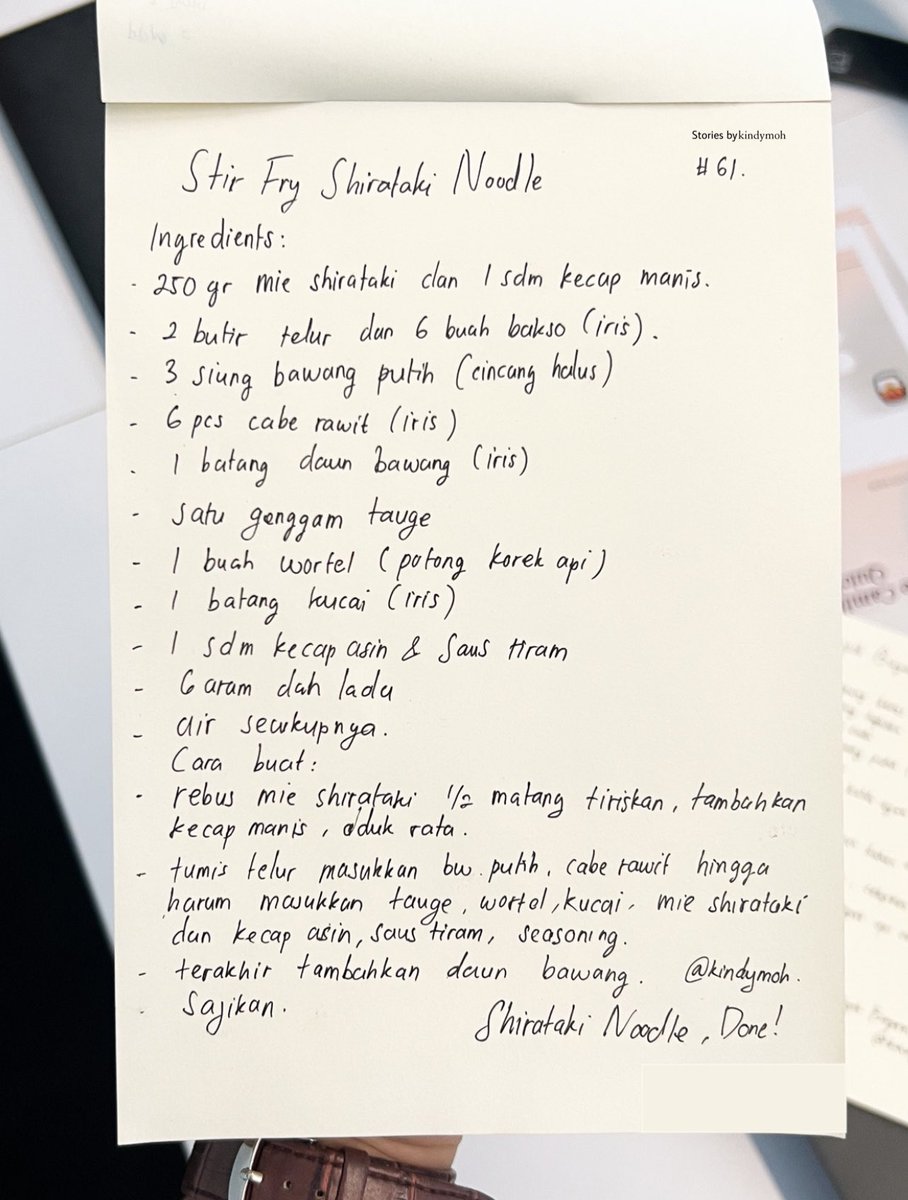 Stories by kindymoh
# 61.
Stir Fry Shirataki Noodle
Ingredients:
- 250 gr mie shirataki dan 1 sdm kecap manis.
- 2 butir telur dan 6 buah bakso (iris).
- 3 siung bawang putih (cincang halus)
- 6 pcs cabe rawit (iris)
- 1 batang daun bawang (iris)
- satu genggam tauge
- 1 buah wortel (potong korek api)
- 1 batang kucai (iris)
- 1 sdm kecap asin & Saus tiram
- Garam dah lada
- air secukupnya.
Cara buat:
- rebus mie shirataki 1/2 matang tiriskan, tambahkan
kecap manis, aduk rata.
- tumis telur masukkan bw. putih, cabe rawit hingga
harum masukkan tauge, wortel, kucai, mie shirataki
dan kecap asin, saus tiram, seasoning.
- terakhir tambahkan daun bawang. @kindymoh.
- Sajikan.
Shirataki Noodle, Done!